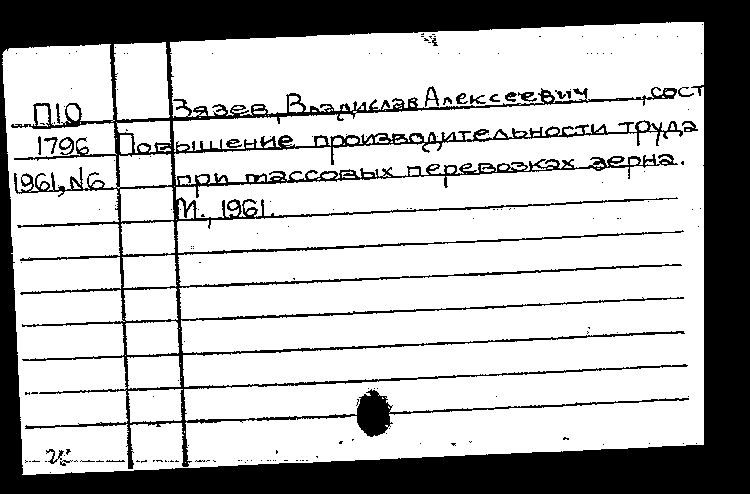 П10 Зязев, Владислав Алексеевич, сост
1796 Повышение производительности труда
1961, N6 при массовых перевозках зерна.
М., 1961.